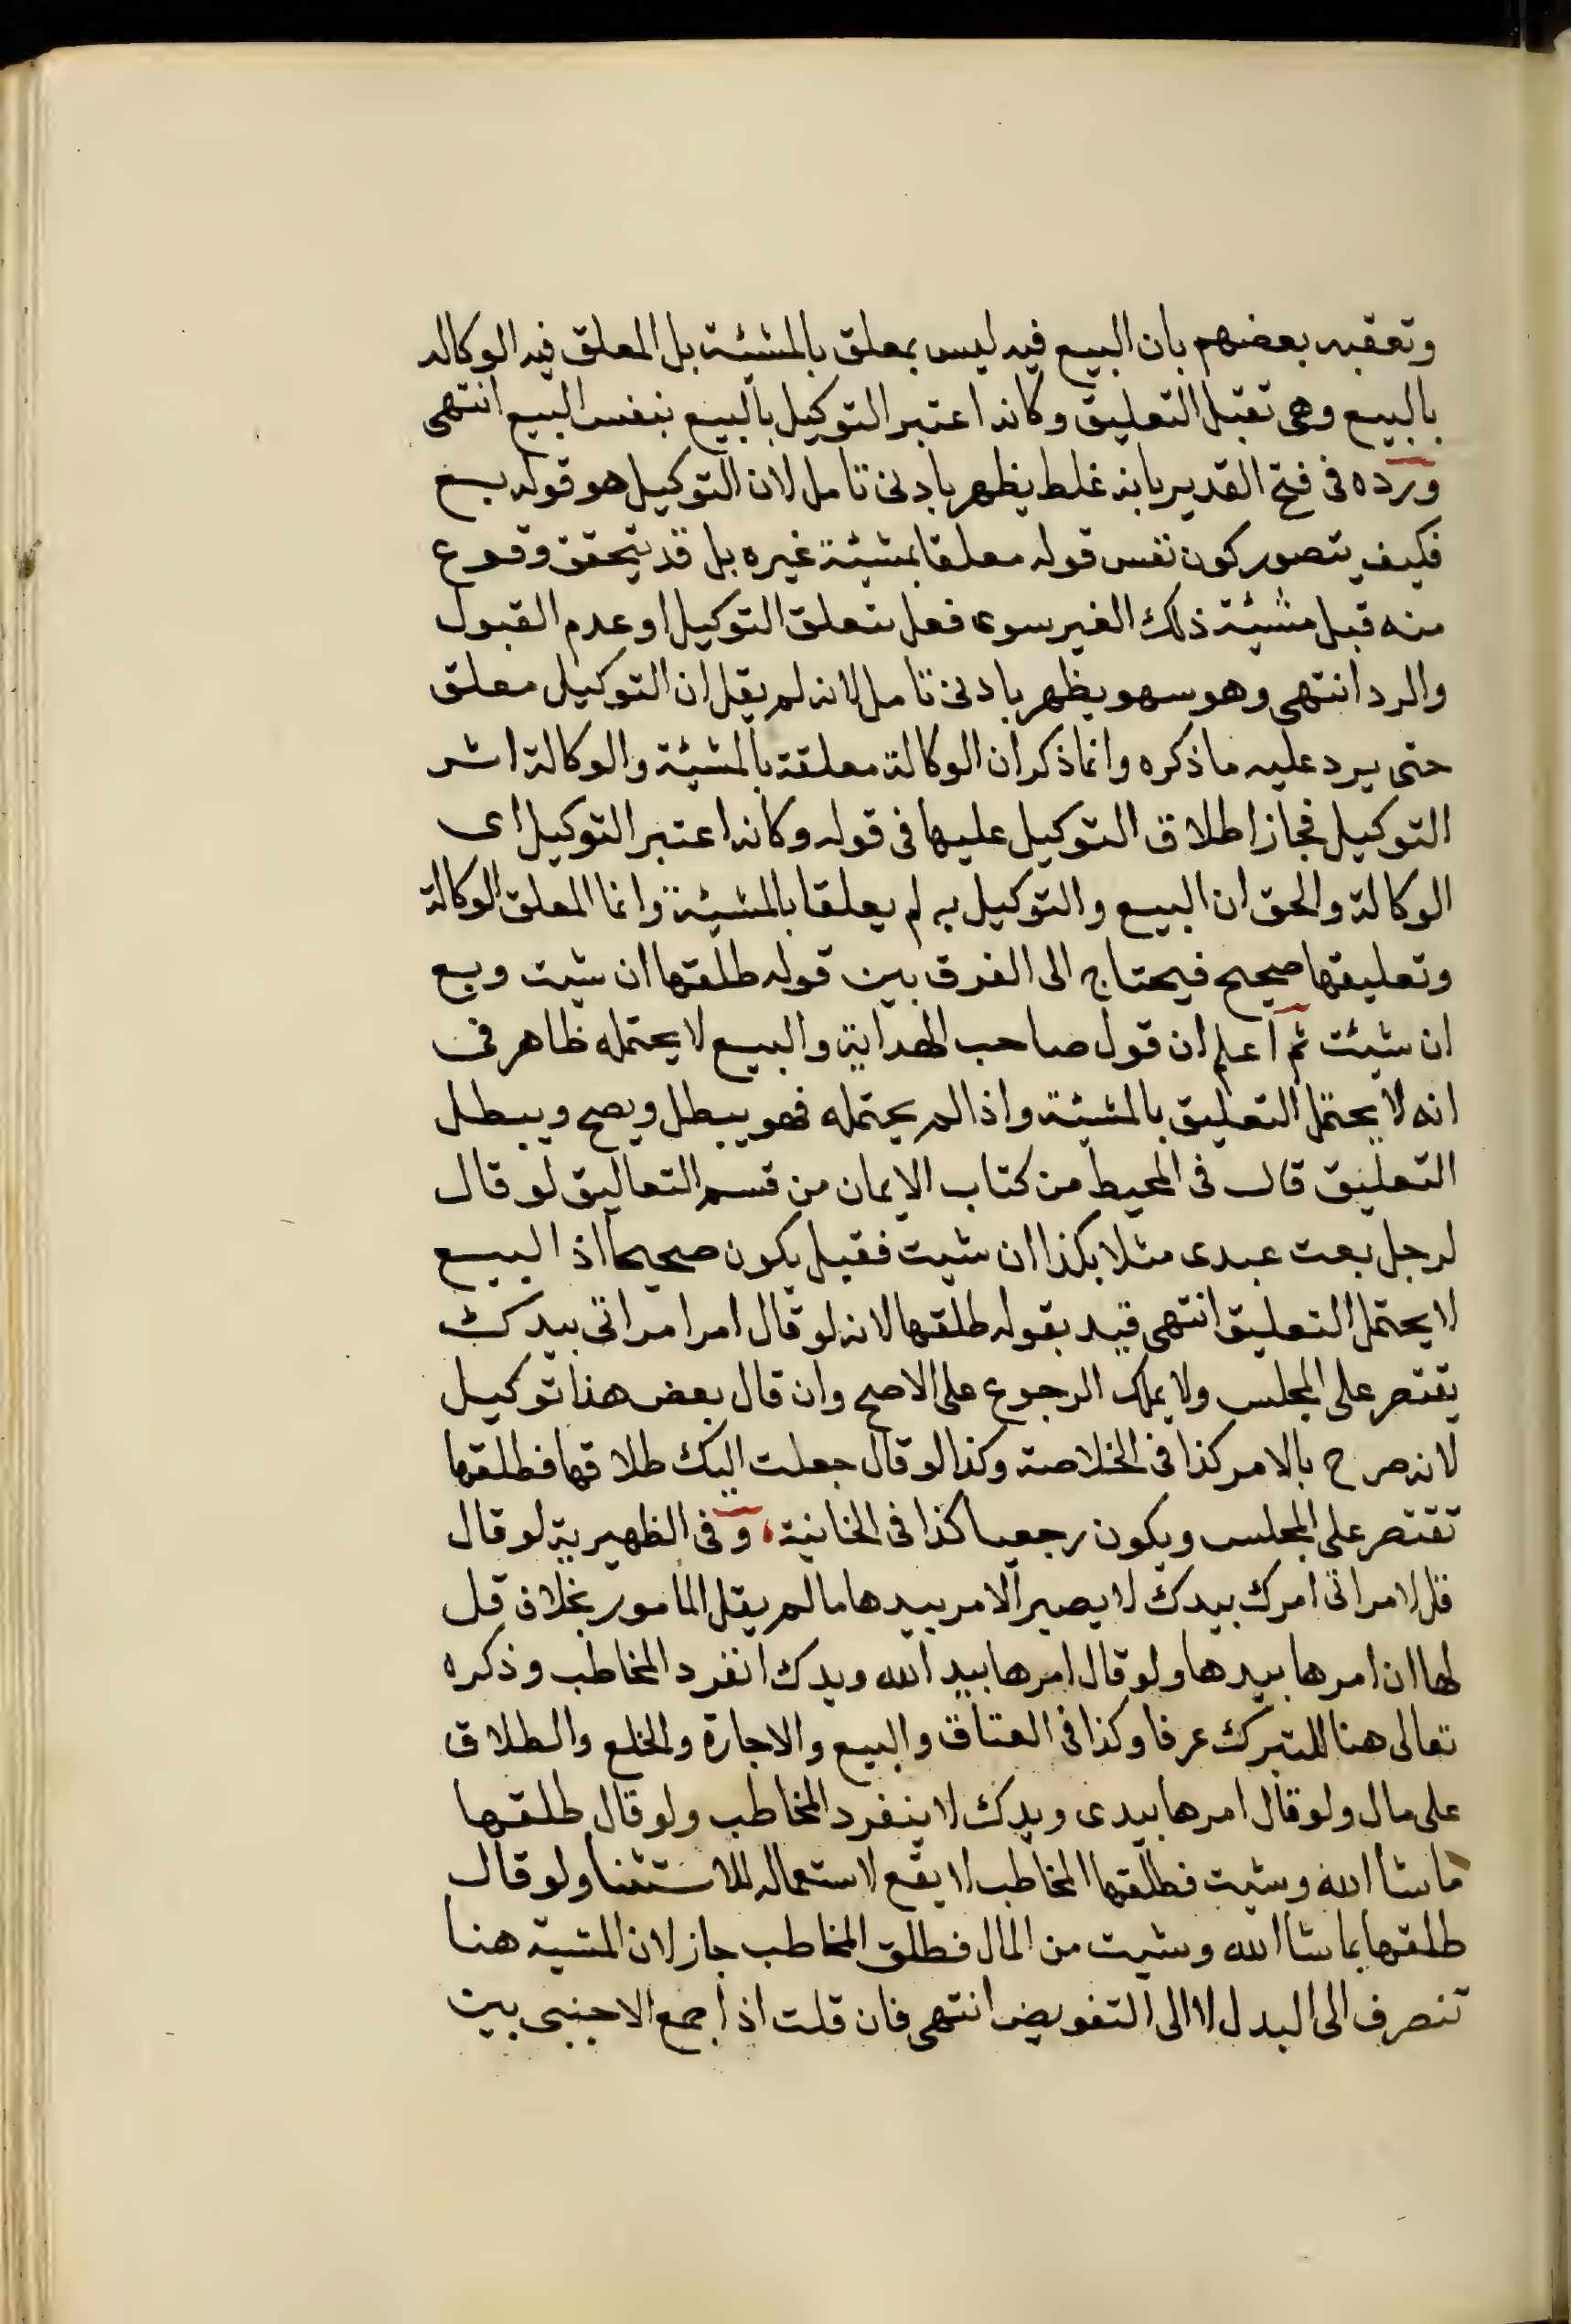 وتعقبه بعضهم بان البيع فيه ليس بمعلق بالمشيئة بل المعلق فيه الوكاله
بالبيع وهى تقبل التعليق وكانه اعتبر التوكيل بالبيع بنفس البيع انتهى
ورده فى فتح القدير بانه غلط يظهر بادنى تامل لان التوكيل هو قوله بع
فكيف يتصور كون نفس قوله معلقا بمشيئة غيره بل قد يتحقق وقوع
منه قبل مشيئة ذلك الغير سوى فعل متعلق التوكيل او عدم القبول
والرد انتهى وهو سهو يظهر بادنى تامل لانه لم يقل ان التوكيل معلق
حتى يرد عليه ما ذكره وانما ذكر ان الوكالة معلقة بالمشيئة والوكالة اثر
التوكيل فجاز اطلاق التوكيل عليها فى قوله وكانه اعتبر التوكيل اى
الوكالة والحق ان البيع والتوكيل به لم يعلقا بالمشيئة وانما المعلق الوكالة
وتعليقها صحيح فيحتاج الى الفرق بين قوله طلقها ان شيت وبع
ان شيئت ثم اعلم ان قول صاحب الهداية والبيع لا يحتمله ظاهر فى
انه لا يحتمل التعليق بالمشيئة واذا لم يحتمله فهو يبطل ويصح ويبطل
التعليق قال فى المحيط من كتاب الايمان من قسم التعاليق لو قال
لرجل بعت عبدى مثلا بكذا ان شيت فقبل يكون صحيحا اذ البيع
لا يحتمل التعليق انتهى قيد بقوله طلقها لانه لو قال امر امراتى بيدك
يقتصر على المجلس ولا يملك الرجوع على الاصح وان قال بعض هذا توكيل
لانه صرح بالامر كذا فى الخلاصة وكذا لو قال جعلت اليك طلاقها فطلقها
تقتصر على المجلس ويكون رجعيا كذا فى الخانية، وفى الظهيرية لو قال
قل لامراتى امرك بيدك لا يصير الامر بيدها ما لم يقل المامور بخلاف قل
لها ان امرها بيدها ولو قال امرها بيد الله ويدك انفرد المخاطب وذكره
تعالى هنا للتبرك عرفا وكذا فى العتاق والبيع والاجارة والخلع والطلاق
على مال ولو قال امرها بيدى ويدك لا ينفرد المخاطب ولو قال طلقها
ما شا الله وشيت فطلقها المخاطب لا يقع لاستعماله للاستثنا ولو قال
طلقها بما شا الله وشيت من المال فطلق المخاطب جاز لان المشية هنا
تنصرف الى البدل لا الى التفويض انتهى فان قلت اذا جمع الاجنبى بين